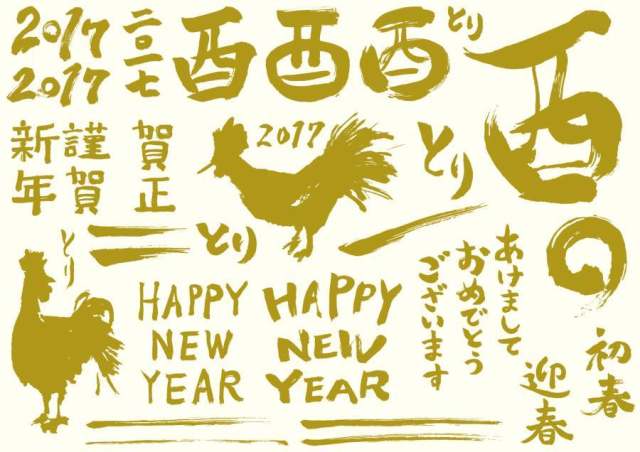 2017
2017
二〇一七
酉
酉
酉
とり
酉
謹賀
新年
賀正
2017
とり
とり
とり
HAPPY
NEW
YEAR
HAPPY
NEW
YEAR
あけまして
おめでとう
ございます
初春
迎春